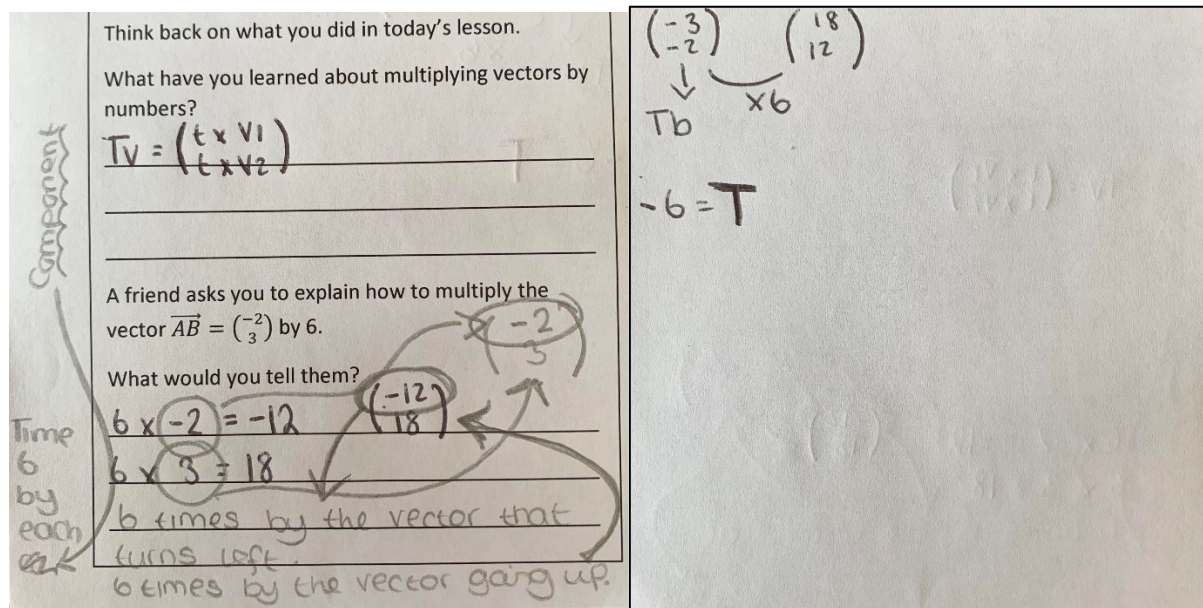 Think back on what you did in today's lesson.
What have you learned about multiplying vectors by
numbers?
Tv = (t x V1
t x V2)
A friend asks you to explain how to multiply the
vector AB = (-2
3) by 6.
(-2
3)
What would you tell them?
6 x -2 = -12
(-12
18)
6 x 3 = 18
6 times by the vector that
turns left.
6 times by the vector going up.
Component
Time
6
by
each
(-3
-2)
(18
12)
x6
Tb
-6 = T